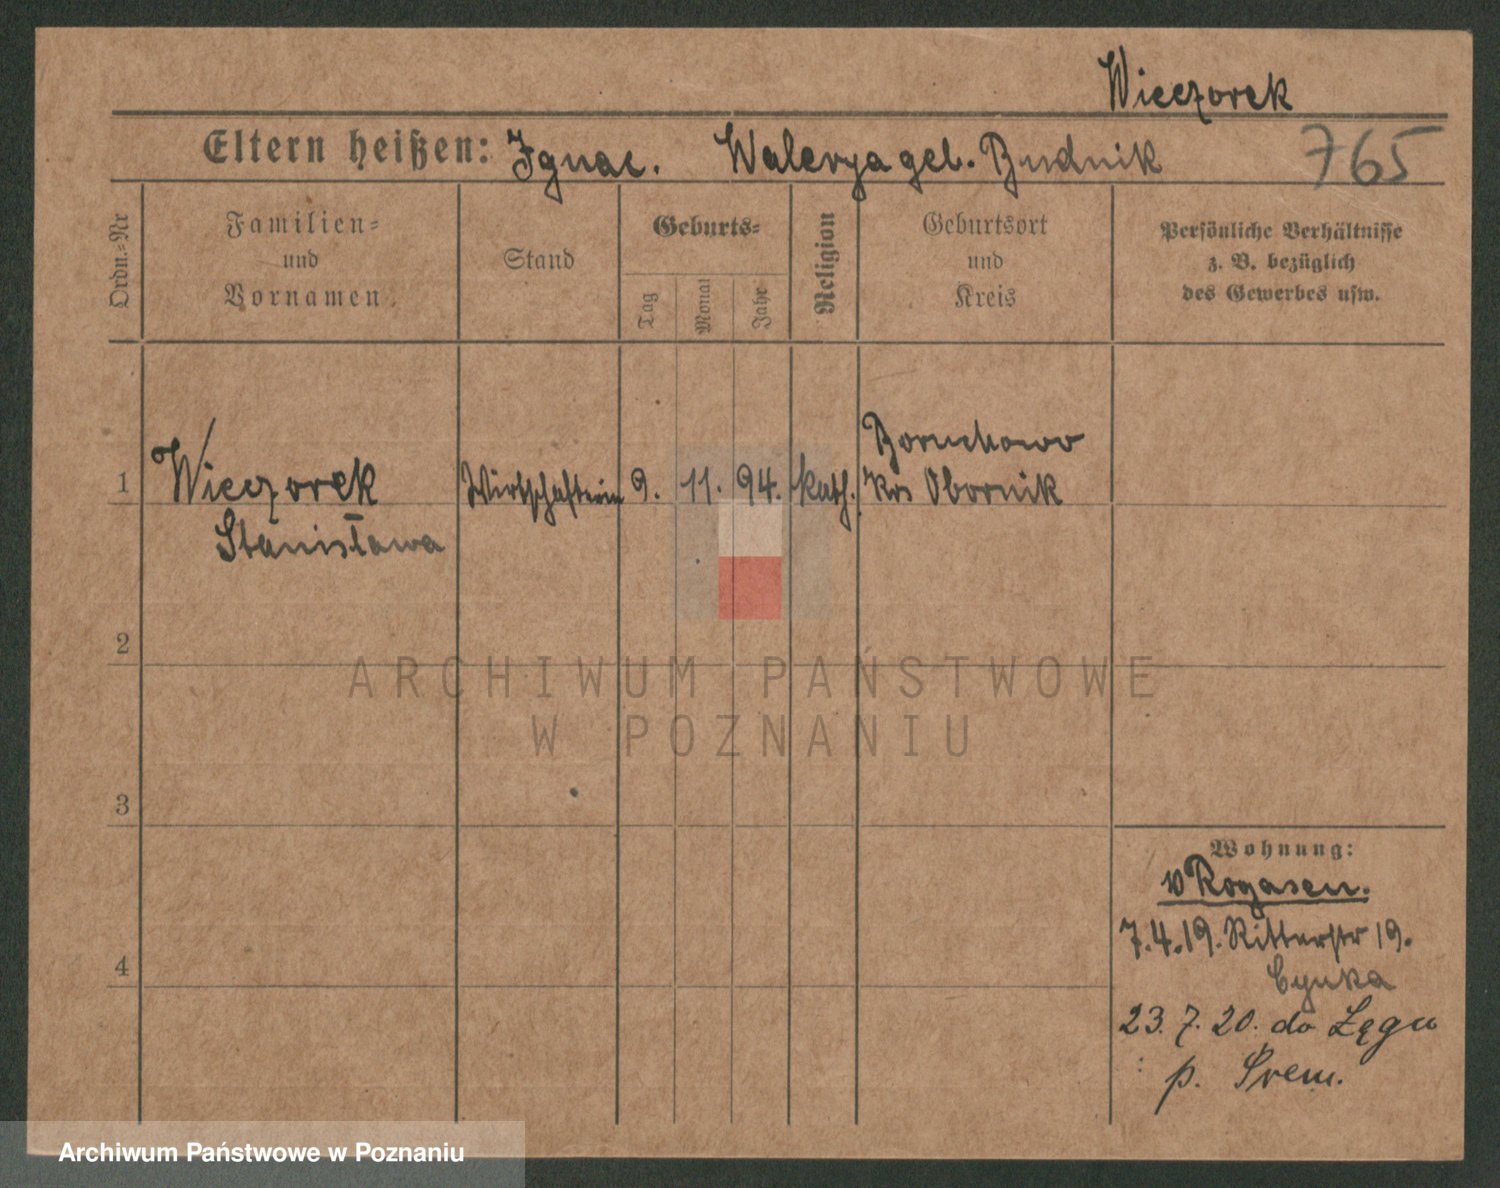 Wieczorek
Eltern heißen: Ignac. Walerya geb. Budnik
765
Ordn.=Nr
Familien=
und
Vornamen
Stand
Geburts=
Tag
Monat
Jahr
Religion
Geburtsort
und
Kreis
Persönliche Verhältnisse
z. B. bezüglich
des Gewerbes usw.
1
Wieczorek
Stanisława
Wirtschafterin
9. 11. 94.
kath.
Boruchowo
Krs Obornik
2
3
4
Wohnung:
v Rogasen.
7.4.19. Ritterstr 19.
Cynka
23. 7. 20. do Łęgu
p. Śrem.
ARCHIWUM PAŃSTWOWE
W POZNANIU
Archiwum Państwowe w Poznaniu